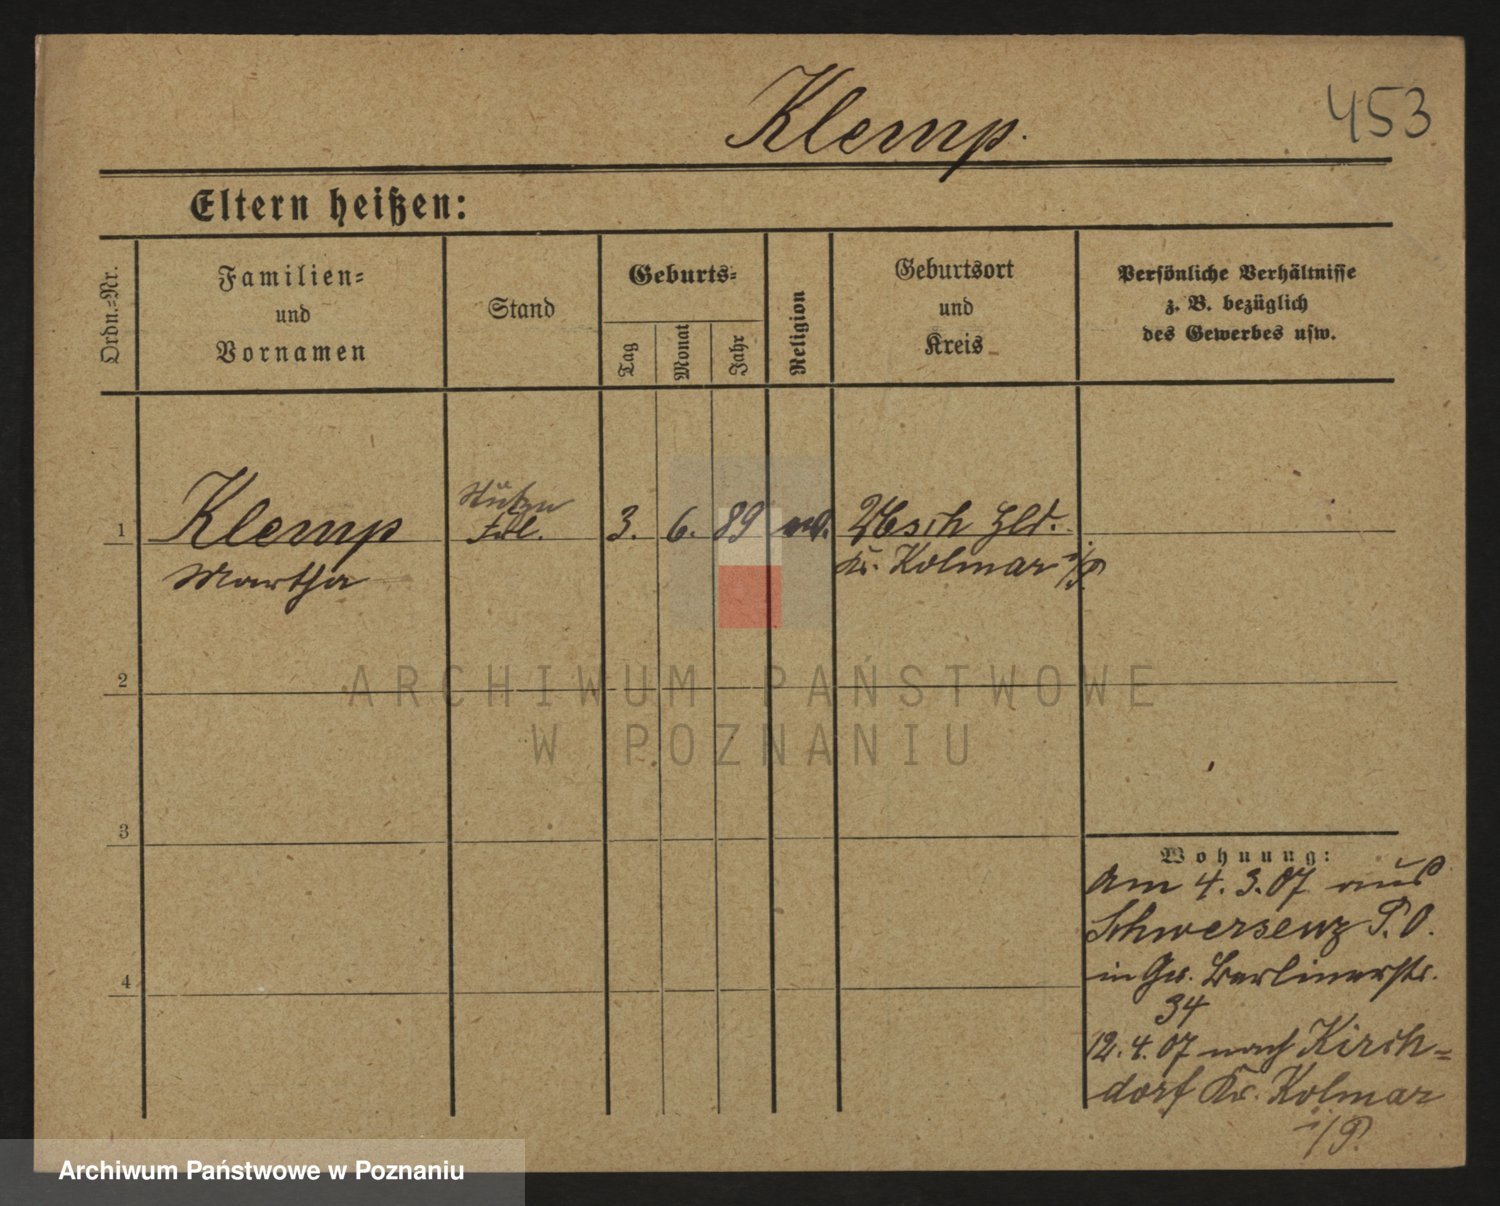 Klemp.
453
Eltern heißen:
Ordn.-Nr.
Familien-
und
Vornamen
Stand
Geburts-
Tag
Monat
Jahr
Religion
Geburtsort
und
Kreis
Persönliche Verhältnisse
z. B. bezüglich
des Gewerbes usw.
1
Klemp
Martha
Stütze
Frl.
3.
6.
89
Usch Hld.
Kr. Kolmar i/P.
2
3
4
Wohnung:
Am 4.3.07 aus
Schwersenz P.O.
in Gr. Berlinerstr.
34
12.4.07 nach Kirch-
dorf Kr. Kolmar
i/P.
ARCHIWUM PAŃSTWOWE
W POZNANIU
Archiwum Państwowe w Poznaniu